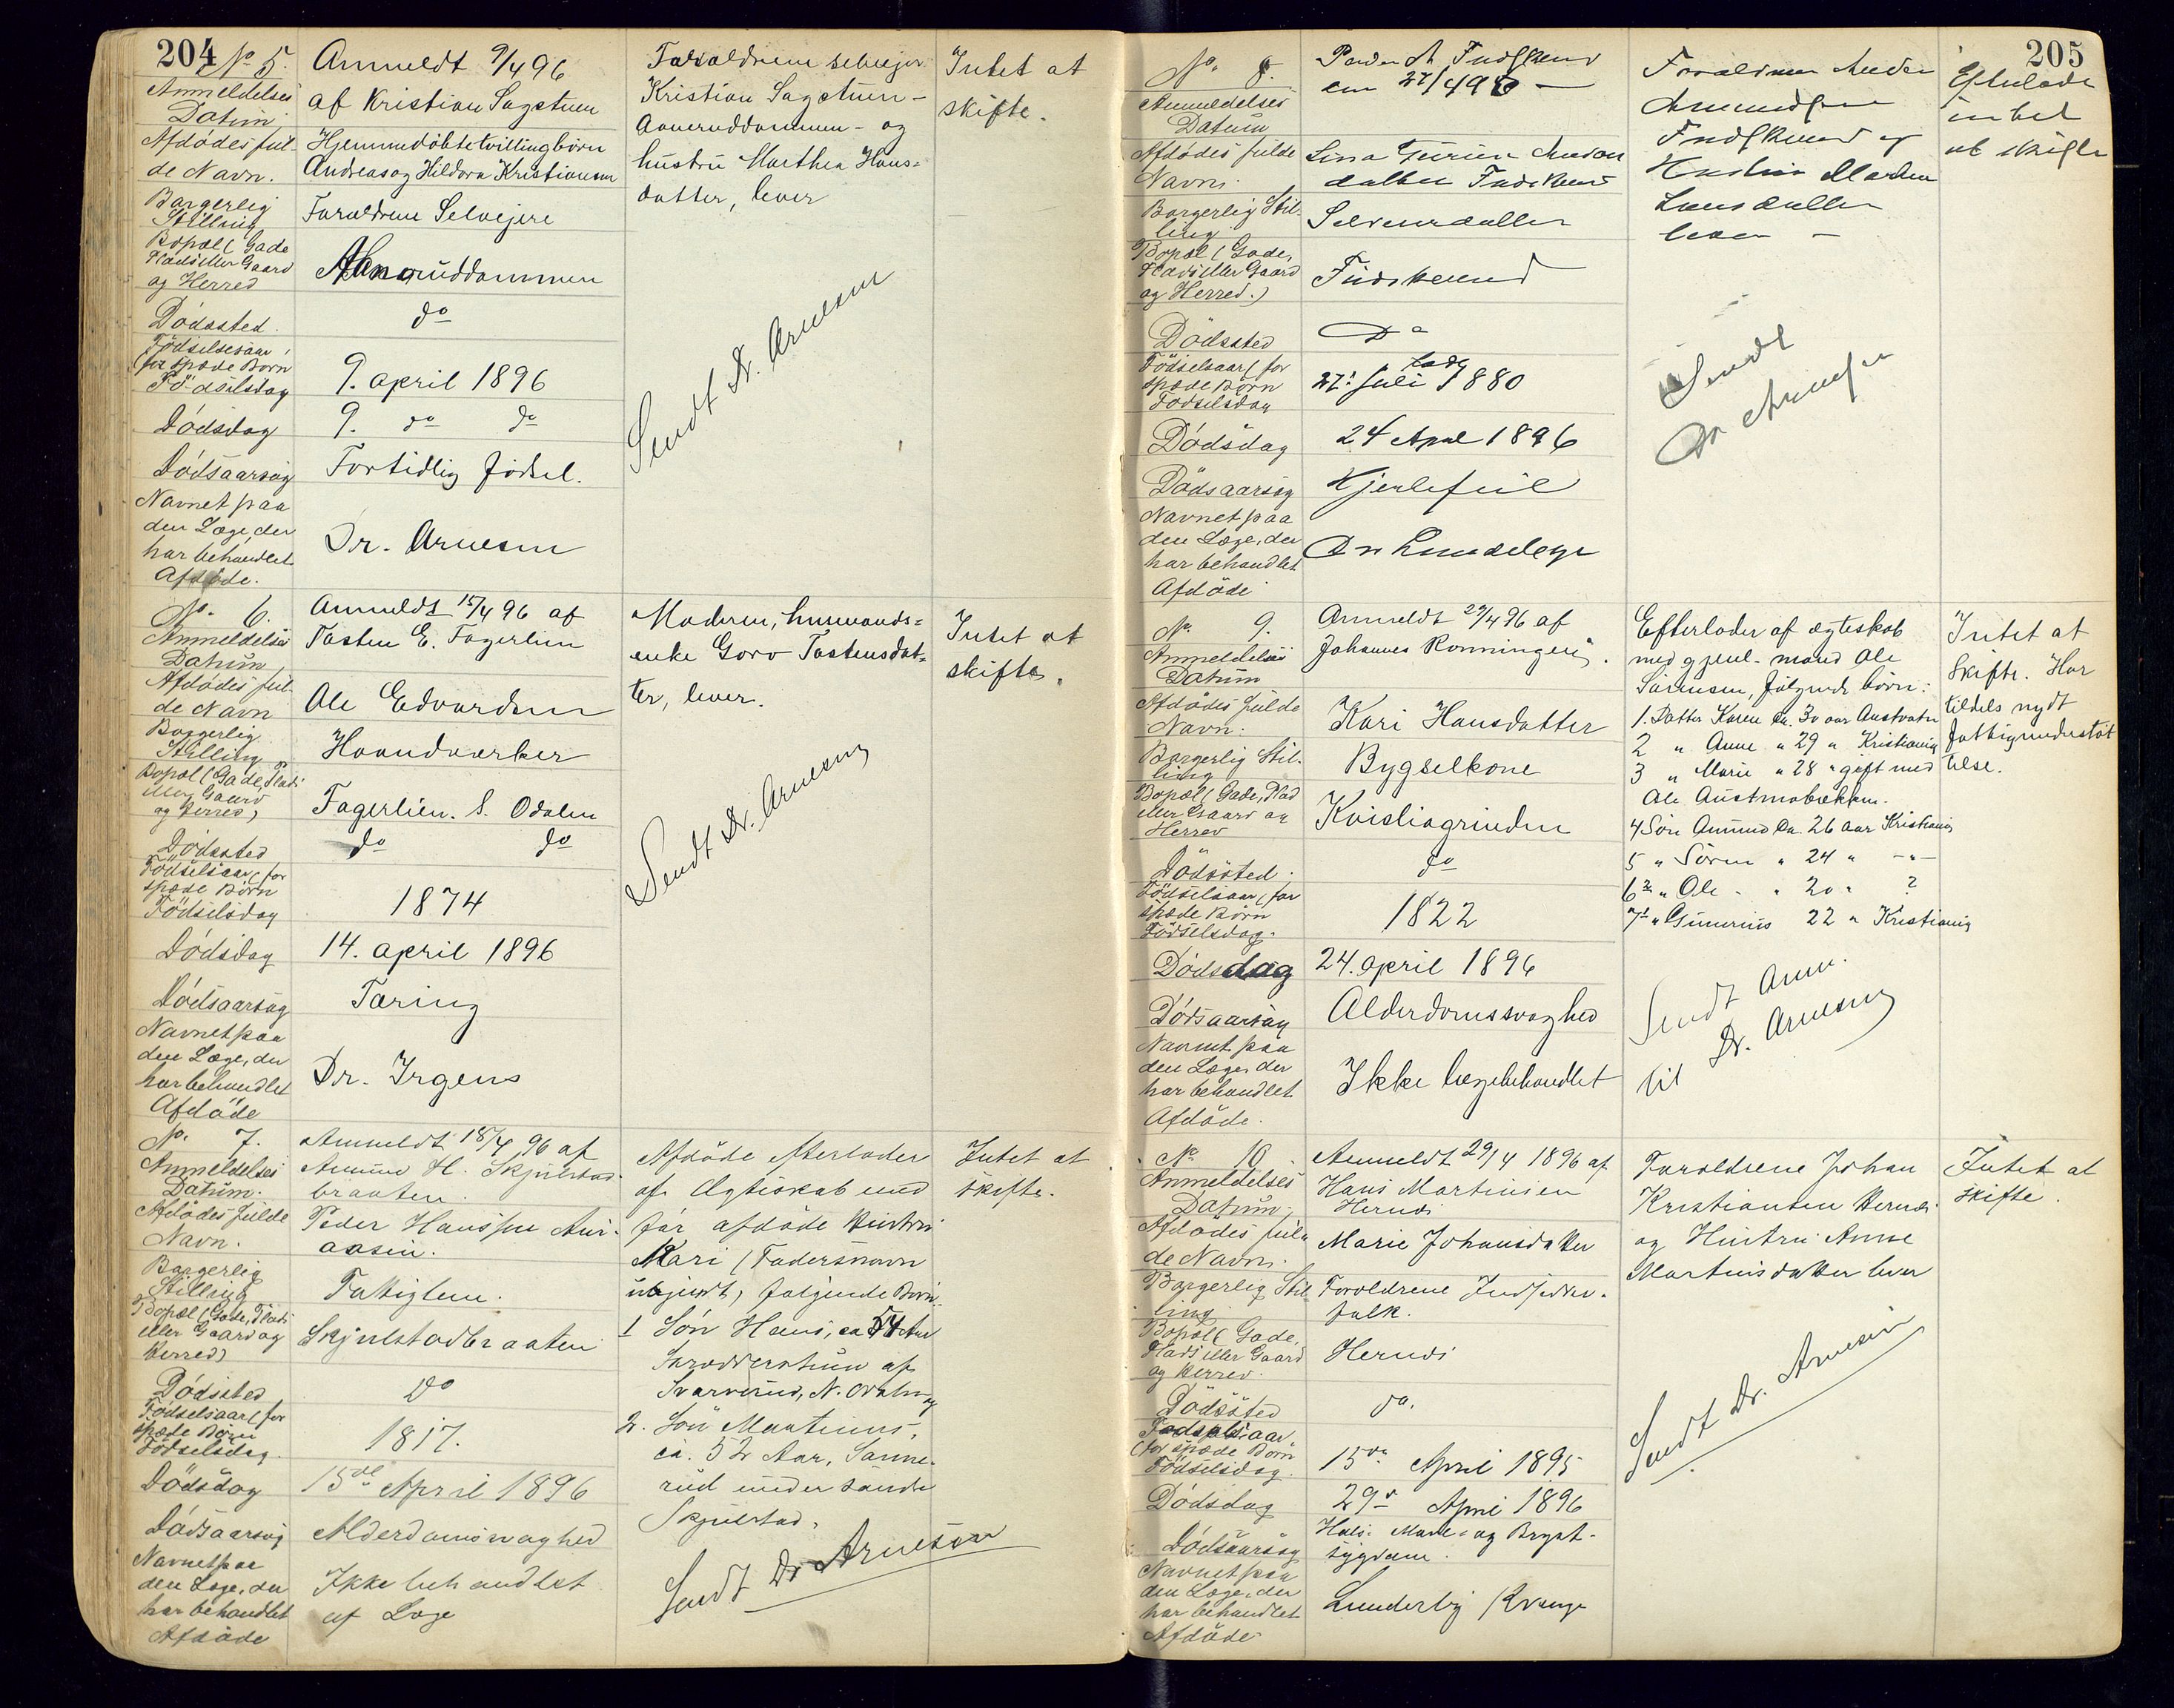 204
No 5.
Anmeldelses
Datum
Anmeldt 9/4 96
af Kristian Sagstuen
Afdödes ful-
de Navn.
Hjemmedöbte tvillingbörn
Andreas og Hildora Kristiansen
Borgerlig
Stilling
Foraldrene Selveiere
Bopæl (Gade
Plads eller Gaard
og Herred
Dödssted
do
Födselsaar,
(for spæde Börn
Födselsdag
9. april 1896
Dödsdag
9. do do
Dödsaarsag
Fortidlig födsel.
Navnet paa
den Læge, der
har behandlet
Afdöde.
Dr. Arnesen
Foraldrene selveier
Kristian Sagstuen-
og
hustru Marthea Hans-
datter, lever
Sendt Dr. Arnesen
Intet at
skifte.
No. 6.
Anmeldelses
Datum
Anmeldt 15/4 96 af
Tosten E. Fagerlien
Afdödes ful-
de Navn
Ole Edvardsen
Borgerlig
Stilling
Haandværker
Bopæl (Gade, Plads
eller Gaard
og Herred)
Fagerlien. S. Odalen
Dödssted
do do
Födselsaar, for
spæde Börn
Födselsdag
1874
Dödsdag
14. april 1896
Dödsaarsag
Tæring
Navnet paa
den Læge, der
har behandlet
Afdöde
Dr. Irgens
Moderen, husmands-
enke Goro Tostensdat-
ter, lever.
Sendt Dr. Arnesen
Intet at
skifte.
No. 7.
Anmeldelses
Datum.
Anmeldt 18/4 96 af
Amund H. Skjulstad-
braaten.
Afdödes fulde
Navn.
Peder Hanssen Aur-
aasen.
Borgerlig
Stilling
Fattiglem.
Bopæl (Gade, Plads
eller Gaard og
Herred)
Skjulstadbraaten
Dödssted
do
Födselsaar (for
spæde Börn
Födselsdag.
1817.
Dödsdag
15de April 1896
Dödsaarsag
Alderdomsvaghed
Navnet paa
den Læge, der
har behandlet
Afdöde
Ikke behandlet
af Læge
Afdöde efterlader
af Ægteskab med
för afdöde Hustru
Kari (Fadersnavn
ukjendt) fölgende Börn:
1 Sön Hans, ca 54 Aar
af
N. Odalen og
2. Sön Martinus,
ca. 52 Aar, Sanne-
rud under söndre
Skjulstad.
Sendt Dr. Arnesen
Intet at
skifte.
205
No. 8.
Anmeldelses
Datum
Afdödes fulde
Navn.
Borgerlig Stil-
ling
Bopæl (Gade,
Plads eller Gaard
og Herred.)
Dödssted
Do
Födselsaar (for
spæde Börn
Födselsdag
27. Juli 1880
Dödsdag
24 April 1896
Dödsaarsag
Navnet paa
den Læge, der
har behandlet
Afdöde
Sendt
Dr Arnesen
Efterlader
intet
at skifte
No. 9.
Anmeldelses
Datum
Anmeldt 27/4 96 af
Johannes Rønningen.
Afdödes fulde
Navn.
Kari Hansdatter
Borgerlig Stil-
ling
Bygselkone
Bopæl (Gade, Plad
eller Gaard og
Herred
Kvisliagrinden
Dödssted.
do
Födselsaar, for
spæde Börn
Födselsdag.
1822
Dödsdag
24. april 1896
Dödsaarsag
Alderdomssvaghed
Navnet paa
den Læge, der
har behandlet
Afdöde.
Ikke lægebehandlet
Efterlader af ægteskab
med gjenl. mand Ole
Sörensen, fölgende börn:
1. Datter Karen ca. 30 aar Austvatn
2 " Anne " 29 " Kristiania
3 " Marie " 28 " gift med
Ole Austmobækken.
4 Sön Amund ca. 26 aar Kristiania
5 " Sören " 24 " -"-
6 " Ole " 20 " ?
7 " Gunerius 22 " Kristiania
Sendt Anm.
til Dr. Arnesen
Intet at
skifte. Har
tildels nydt
fattigunderstöt
telse.
No 10.
Anmeldelses
Datum.
Anmeldt 29/4 1896 af
Hans Martinsen
Hernes
Afdödes ful-
de Navn.
Marie Johansdatter
Borgerlig Stil-
ling
Foraldrene Indsidder-
folk.
Bopæl (Gade,
Plads eller Gaard
og Herred.
Hernes
Dödssted
do.
Födselsaar
(for spæde Börn
Födselsdag.
15de April 1895
Dödsdag
29de April 1896
Dödsaarsag
Hals- Mave- og Bryst-
sygdom.
Navnet paa
den Læge, der
har behandlet
Afdöde
Foraldrene Johan
Kristiansen Hernes
og Hustru Anne
Martinsdatter lever
Sendt Dr. Arnesen
Intet at
skifte.